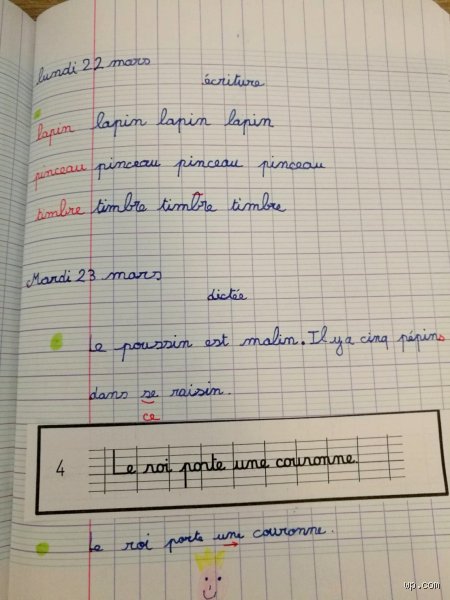 lundi 22 mars
écriture
lapin lapin lapin lapin
pinceau pinceau pinceau pinceau
timbre timbre timbre timbre
Mardi 23 mars
dictée
Le poussin est malin. Il y a cinq pépins
dans se raisin.
ce
4 Le roi porte une couronne.
Le roi porte une couronne.
wp.com